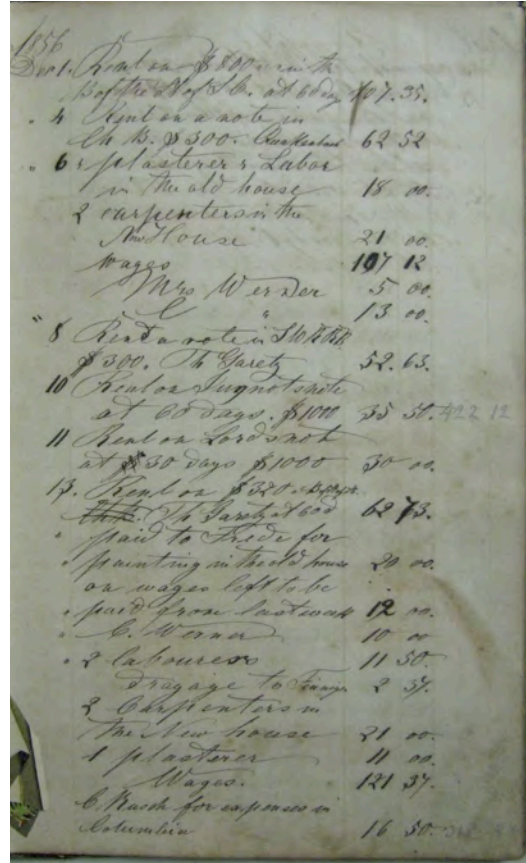 1856
Dec 1. Renl on $800 in the
B of the St of S.C. at 60 day 107.35.
" 4 Renl on a note in
Ch B. $300. 62 52
" 6 1 plasterer & Labor
in the old house 18 00.
2 carpenters in the
New House 21 00.
Wages 107 12
Mrs Werner 5 00.
C " 13 00.
" 8 Renl a note in
$300. Th Garety 52.63.
10 Renl on note
at 60 days. $1000 35 50. 422 12
11 Renl on Lords not
at 30 days $1000 30 00.
13. Renl on $320
Th Garety at 60 d 62 73.
" paid to Frede for
" painting in the old house 20 00.
on wages left to be
" paid from last week 12 00.
" C. Werner 10 00
" 2 labourers 11 50.
dragage to 2 37.
2 Carpenters in
the New house 21 00.
1 plasterer 11 00.
Wages. 121 37.
C. Kusch for expenses in
Columbia 16 50.